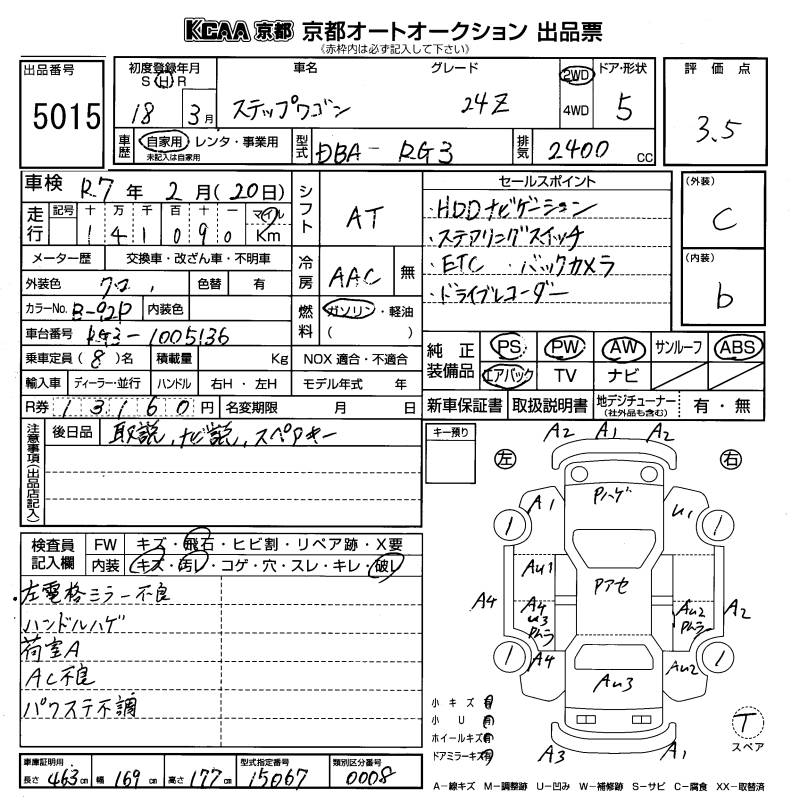 KCAA 京都 京都オートオークション 出品票
(赤枠内は必ず記入して下さい)
出品番号 5015
初度登録年月 S H R 18 3月
車名 ステップワゴン
グレード 24Z
2WD 4WD
ドア・形状 5
評価点 3.5
車歴 自家用 レンタ・事業用
未記入は自家用
型式 DBA-RG3
排気 2400 CC
車検 R.7年 2月(20日)
シフト AT
セールスポイント
・HDDナビゲーション
・ステアリングスイッチ
・ETC ・バックカメラ
・ドライブレコーダー
(外装) C
(内装) b
走行 記号 十万千百十一 マイル
141090 Km
メーター歴 交換車・改ざん車・不明車
冷房 AAC 無
外装色 クロ 色替 有
カラーNo. B-92P 内装色
燃料 ガソリン・軽油
( )
車台番号 RG3-1005136
乗車定員 (8)名 積載量 Kg NOX適合・不適合
純正装備品 PS PW AW サンルーフ ABS
エアバック TV ナビ
輸入車 ディーラー・並行 ハンドル 右H・左H モデル年式 年
R券 13160円 名変期限 月 日
新車保証書 取扱説明書 地デジチューナー 有・無
(社外品も含む)
注意事項(出品店記入)
後日品 取説,ナビ説,スペアキー
キー預り
左 右
A2 A1 A2
Pハゲ
A1 U1
Pアセ
AU1
A4
A4
U3
Pムラ
A4
AU2
Pムラ
A2
AU2
AU3
A3 A1
T
スペア
検査員記入欄
FW キズ・飛石・ヒビ割・リペア跡・X要
内装 キズ・汚レ・コゲ・穴・スレ・キレ・破レ
・左電格ミラー不良
ハンドルハゲ
荷室A
AC不良
パワステ不調
小キズ有
小U有
ホイールキズ有
ドアミラーキズ有
車庫証明用
長さ463cm 幅169cm 高さ177cm
型式指定番号 15067
類別区分番号 0008
A-線キズ M-調整跡 U-凹み W-補修跡 S-サビ C-腐食 XX-取替済